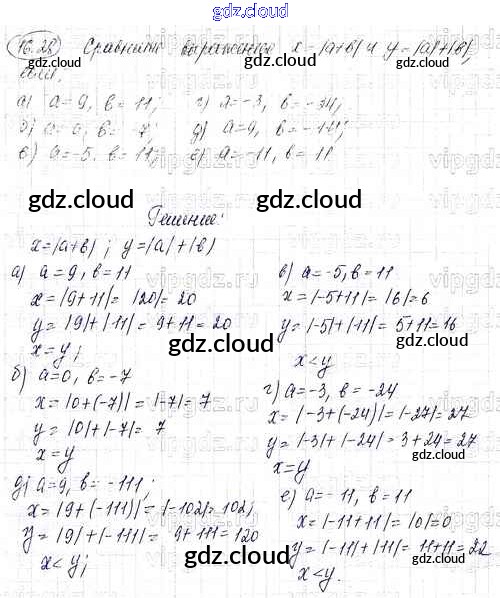 gdz.cloud
16.28 Сравните выражение x=|a+b| и y=|a|+|b|,
если,
а) a=9, b=11; г) a=-3, b=-24;
б) a=0, b=-7; д) a=9, b=-111;
в) a=-5, b=11; е) a=-11, b=11
gdz.cloud gdz.cloud
Решение:
x=|a+b| ; y=|a|+|b|
а) a=9, b=11
x=|9+11|=|20|=20
y=|9|+|11|=9+11=20
x=y;
б) a=0, b=-7
x=|0+(-7)|=|-7|=7
y=|0|+|-7|=7
x=y
д) a=9, b=-111;
x=|9+(-111)|=|-102|=102;
y=|9|+|-111|=9+111=120
x<y;
в) a=-5, b=11
x=|-5+11|=|6|=6
y=|-5|+|11|=5+11=16
x<y
г) a=-3, b=-24
x=|-3+(-24)|=|-27|=27
y=|-3|+|-24|=3+24=27
x=y
е) a=-11, b=11
x=|-11+11|=|0|=0
y=|-11|+|11|=11+11=22
x<y.
gdz.cloud gdz.cloud
gdz.cloud gdz.cloud
gdz.cloud